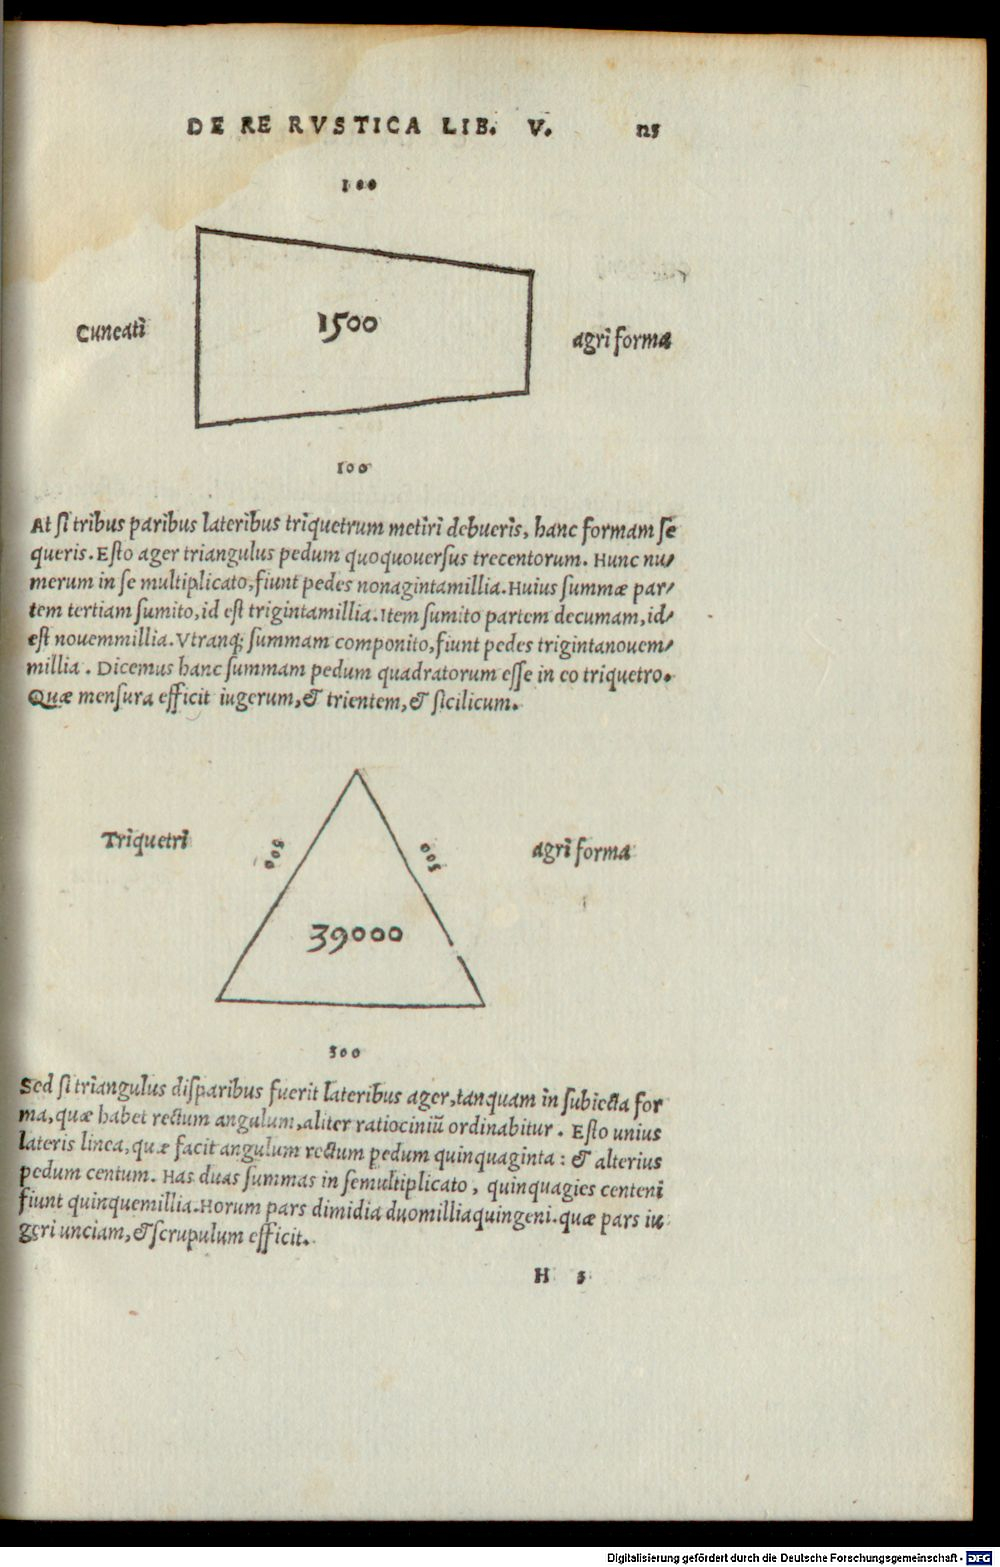 DE RE RVSTICA LIB. V. 115
100
1500
Cuneati agri forma
100
At ſi tribus paribus lateribus triquetrum metiri debueris, hanc formam ſe
queris. Eſto ager triangulus pedum quoquouerſus trecentorum. Hunc nu/
merum in ſe multiplicato, fiunt pedes nonagintamillia. Huius ſummæ par/
tem tertiam ſumito, id eſt trigintamillia. Item ſumito partem decumam, id/
eſt nouemmillia. Vtranq; ſummam componito, fiunt pedes trigintanouem/
millia. Dicemus hanc ſummam pedum quadratorum eſſe in eo triquetro.
Quæ menſura efficit iugerum, & trientem, & ſicilicum.
Triquetri agri forma
300 300
39000
300
Sed ſi triangulus diſparibus fuerit lateribus ager, tanquam in ſubiecta for
ma, quæ habet rectum angulum, aliter ratiociniū ordinabitur. Eſto unius
lateris linea, quæ facit angulum rectum pedum quinquaginta: & alterius
pedum centum. Has duas ſummas in ſemultiplicato, quinquagies centeni
fiunt quinquemillia. Horum pars dimidia duomilliaquingeni. quæ pars iu:
geri unciam, & ſcrupulum efficit.
H 3
Digitalisierung gefördert durch die Deutsche Forschungsgemeinschaft - DFG